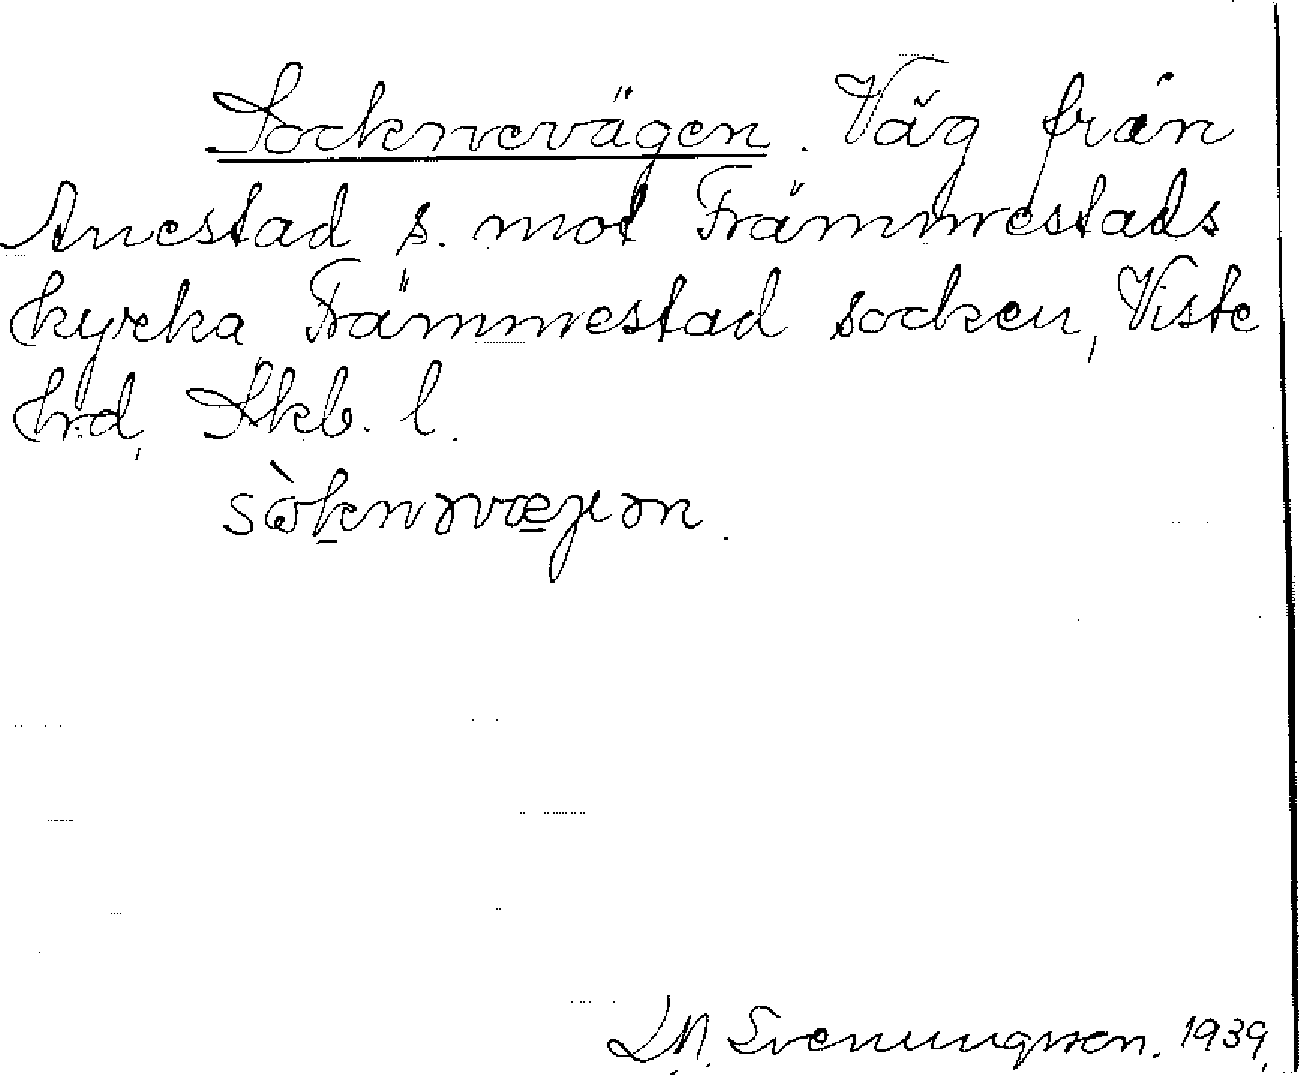 Socknevägen. Väg från
Anestad s. mot Främmestads
kyrka, Främmestad socken, Viste
hrd, Skb. l.
sòknəvægən.
Svenungsson. 1939.